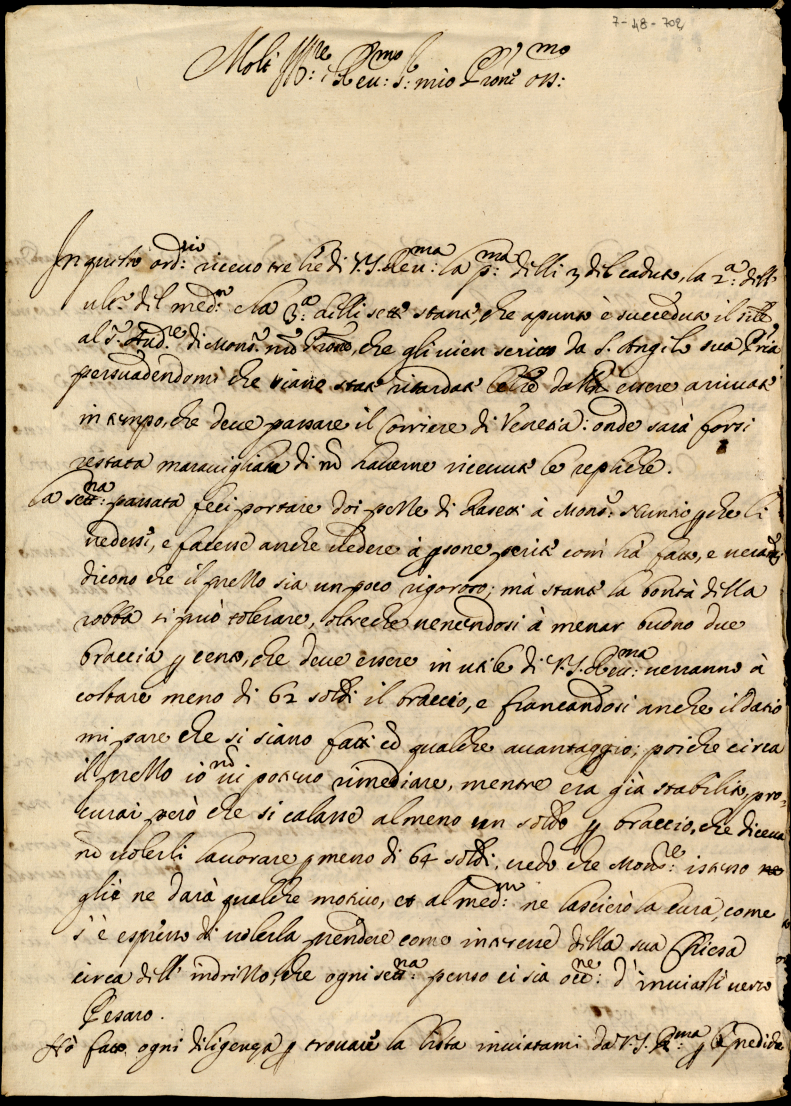 7-48-702
Molt Ill:re e Reu:mo S:r mio P'rone oss:mo
In questo ord:rio riceuo tre lre di V.S. Reu:ma la p:ma delli 3 del caduto, la 2.a dell'
ult.o del med.mo e la 3.a delli sette stante, che apunto è succeduta il
al S.r Aud.re di Mons.r mio P'rone, che gli vien scritto da S. Angelo sua P'ria
persuadendomi che siano state ritardate per essere arriuate
in tempo, che deue passare il Corriere di Venetia: onde sarà forsi
restata marauigliata di nõ hauerne riceuute le repliche.
La sett:na passata feci portare doi pesse di Rasetti à Mons.r Nuntio, p che li
uedesse, e facesse anche uedere à psone perite com'hà fatto, e
dicono che il prezzo sia un poco rigoroso; mà stante la bontà della
robba si può tolerare, oltreche uenendosi à menar buono due
braccia p cento, che deue essere in utile di V.S. Reu:ma uerranno à
costare meno di 62 soldi il braccio, e francandosi anche il datio
mi pare che si siano fatti cõ qualche auantaggio; poiche circa
il prezzo io nõ ui poteuo rimediare, mentre era già stabilito, pro-
curai però che si calasse almeno un soldo p braccio, che diceua
nõ uolerli lauorare p meno di 64 soldi; credo che Mons.re istesso
gliè ne darà qualche motiuo, et al med:mo ne lascierò la cura, come
s'è espresso di uolerla prendere come interesse della sua Chiesa
circa dell'indrizzo, che ogni sett:na penso ci sia occ:ne d'inuiarli uerso
Pesaro.
Hò fatto ogni diligenza p trouare la lista inuiatami da V.S. R:ma p